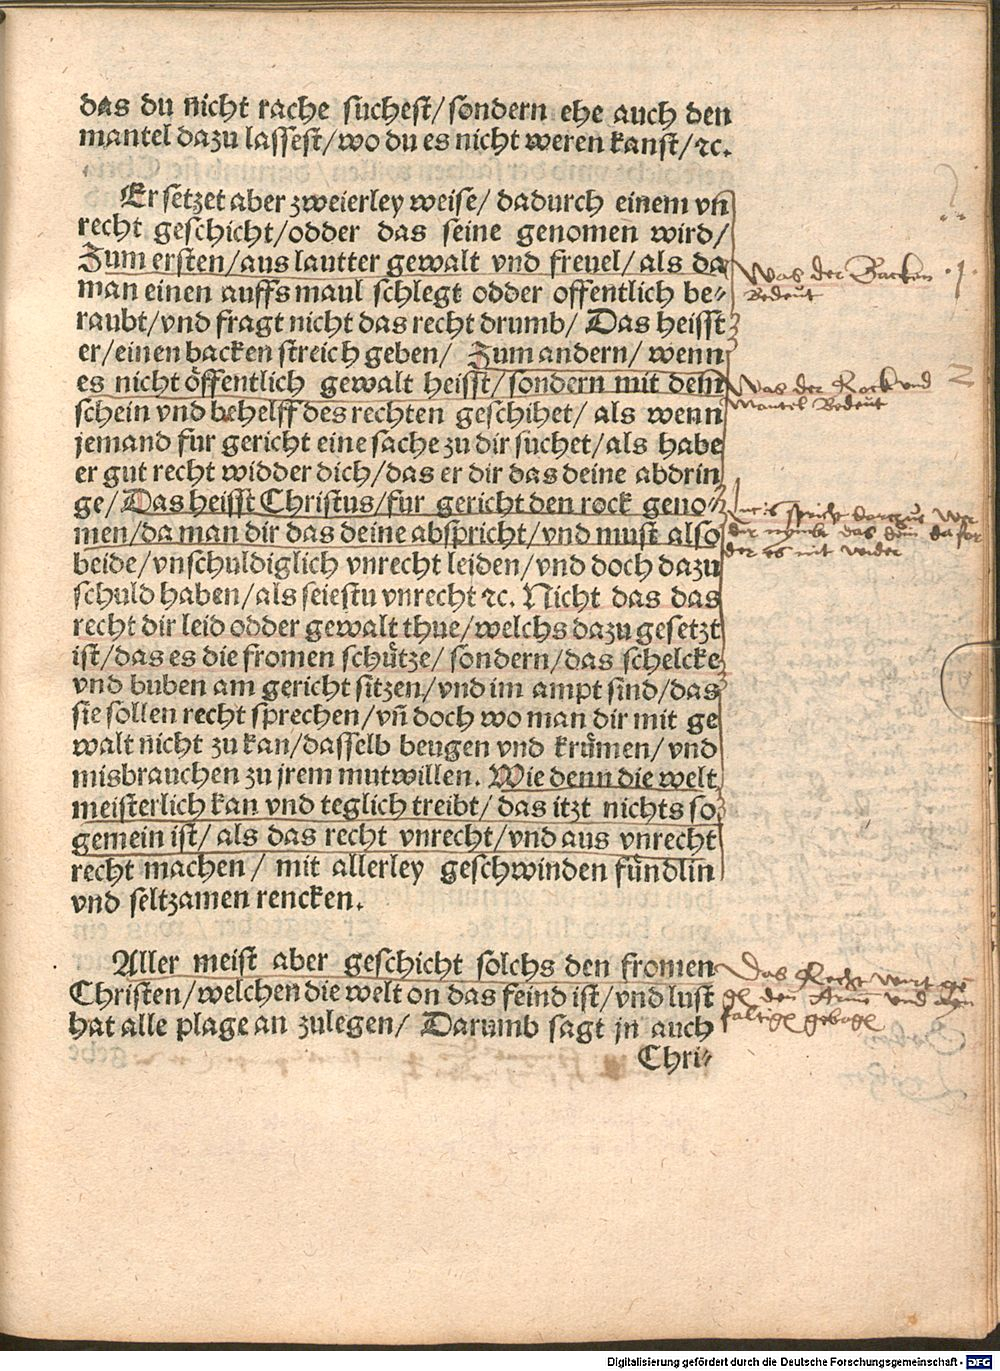 das du nicht rache suchest/sondern ehe auch den
mantel dazu lassest/wo du es nicht weren kanst/ꝛc.
Er setzet aber zweierley weise/ dadurch einem vñ
recht geschicht/odder das seine genomen wird/
Zum ersten/aus lautter gewalt vnd freuel/als da
man einen auffs maul schlegt odder offentlich be⸗
raubt/vnd fragt nicht das recht drumb/ Das heisst
er/einen backen streich geben/ Zum andern/ wenn
es nicht öffentlich gewalt heisst/sondern mit dem
schein vnd behelff des rechten geschihet/ als wenn
jemand fur gericht eine sache zu dir suchet/als habe
er gut recht widder dich/das er dir das deine abdrin
ge/Das heisst Christus/fur gericht den rock geno⸗
men/da man dir das deine abspricht/vnd must also
beide/vnschuldiglich vnrecht leiden/vnd doch dazu
schuld haben/als seiestu vnrecht ꝛc. Nicht das das
recht dir leid odder gewalt thue/welchs dazu gesetzt
ist/das es die fromen schütze/ sondern/das schelcke
vnd buben am gericht sitzen/vnd im ampt sind/das
sie sollen recht sprechen/vñ doch wo man dir mit ge
walt nicht zu kan/dasselb beugen vnd krümen/vnd
misbrauchen zu jrem mutwillen. Wie denn die welt
meisterlich kan vnd teglich treibt/das itzt nichts so
gemein ist/ als das recht vnrecht/vnd aus vnrecht
recht machen/ mit allerley geschwinden fündlin
vnd seltzamen rencken.
Aller meist aber geschicht solchs den fromen
Christen/welchen die welt on das feind ist/vnd lust
hat alle plage an zulegen/ Darumb sagt jn auch
Chri⸗
Was der Backen
Bedeut
1
Was der Rock und
Mantel Bedeut
2
Das Recht wirt
den Arme und
Digitalisierung gefördert durch die Deutsche Forschungsgemeinschaft - DFG